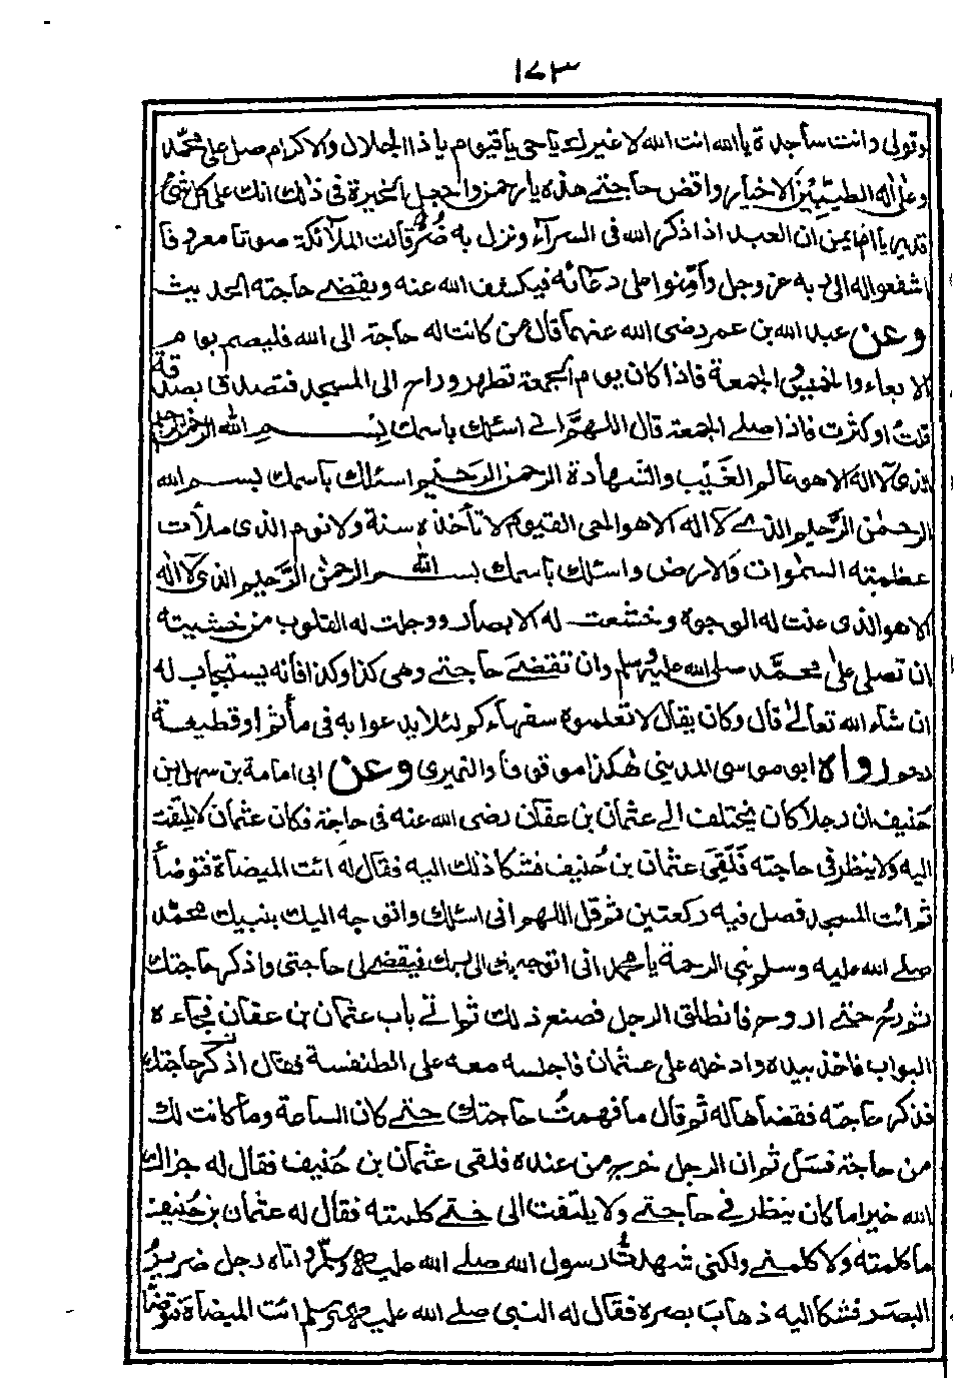 ١٧٣
وتولى وانت ساجدة يا الله انت الله لا غيرك يا حي يا قيوم يا ذا الجلال والاكرام صل على محمد
وعلى اله الطيبين الاخيار واقض حاجتى هذه يا رحمن واجعل الخيرة فى ذلك انك على كل شئ
قدير يا ان العبد اذا ذكر الله فى السرآء ونزل به ضُرٌ قالت الملائكة صوتا معروفا
اشفعوا له الى ربه عز وجل وأمّنوا على دعائه فيكشف الله عنه ويقضے حاجته الحديث
وعن عبد الله بن عمر رضى الله عنهما قال من كانت له حاجة الى الله فليصم يوم
الاربعاء والخميس والجمعة فاذا كان يوم الجمعة تطهر وراح الى المسجد فتصدق بصدقة
قلت او كثرت فاذا صلے الجمعة قال اللهم انى اسئلك باسمك بسم الله الرحمن الرحيم
الذى لا اله الا هو عالم الغَيْب والشهادة الرحمن الرحيم واسئلك باسمك بسم الله
الرحمٰن الرَّحيم الذے لا اله الا هو الحى القيوم لا تأخذه سنة ولا نوم الذى ملأت
عظمته السمٰوات والارض واسئلك باسمك بسم الله الرحمٰن الرَّحيم الذى لا اله
الا هو الذى عنت له الوجوه وخشعت له الابصار ووجلت له القلوب من خشيته
ان تصلى على محمَّد صلى الله عليه وسلم وان تقضے حاجتے وهى كذا وكذا فانه يستجاب له
ان شاء الله تعالىٰ قال وكان يقال لا تعلموه سفهاءكم لئلا يدعوا به فى مأثم او قطيعة
رحم رواه ابو موسى المدينى هٰكذا موقوفا والنميرى وعن ابى امامة بن سهل بن
حَنيف ان رجلا كان يختلف الے عثمان بن عفان رضى الله عنه فى حاجة فكان عثمان لا يلتفت
اليه ولا ينظر فى حاجته فَلَقِىَ عثمان بن حُنيف فشكا ذلك اليه فقال له ائت الميضاة فتوضأ
ثم ائت المسجد فصل فيه ركعتين ثم قل اللهم انى اسئلك واتوجه اليك بنبيك محمّد
صلے الله عليه وسلم نبى الرحمة يا محمد انى اتوجه بك الى ربك فيقضے لى حاجتى واذكر حاجتك
ثم رُح حتے اروح فانطلق الرجل فصنع ذلك ثم اتے باب عثمان بن عفان فجاءه
البواب فاخذ بيده وادخله على عثمان فاجلسه معه على الطنفسة فقال اذكر حاجتك
فذكر حاجته فقضاها له ثم قال ما فهمتُ حاجتك حتے كان الساعة وما كانت لك
من حاجة فسَل ثم ان الرجل خرج من عنده فلقى عثمان بن حُنيف فقال له جزاك
الله خيرا ما كان ينظر فے حاجتے ولا يلتفت الى حتے كلمته فقال له عثمان بن حُنيف
ما كلمته ولا كلمنے ولكنى شهدتُ رسول الله صلے الله عليه وسلم واتاه رجل ضريرُ
البصَر فشكا اليه ذهابَ بصره فقال له النبى صلے الله عليه وسلم ائت الميضاة فتوضأ